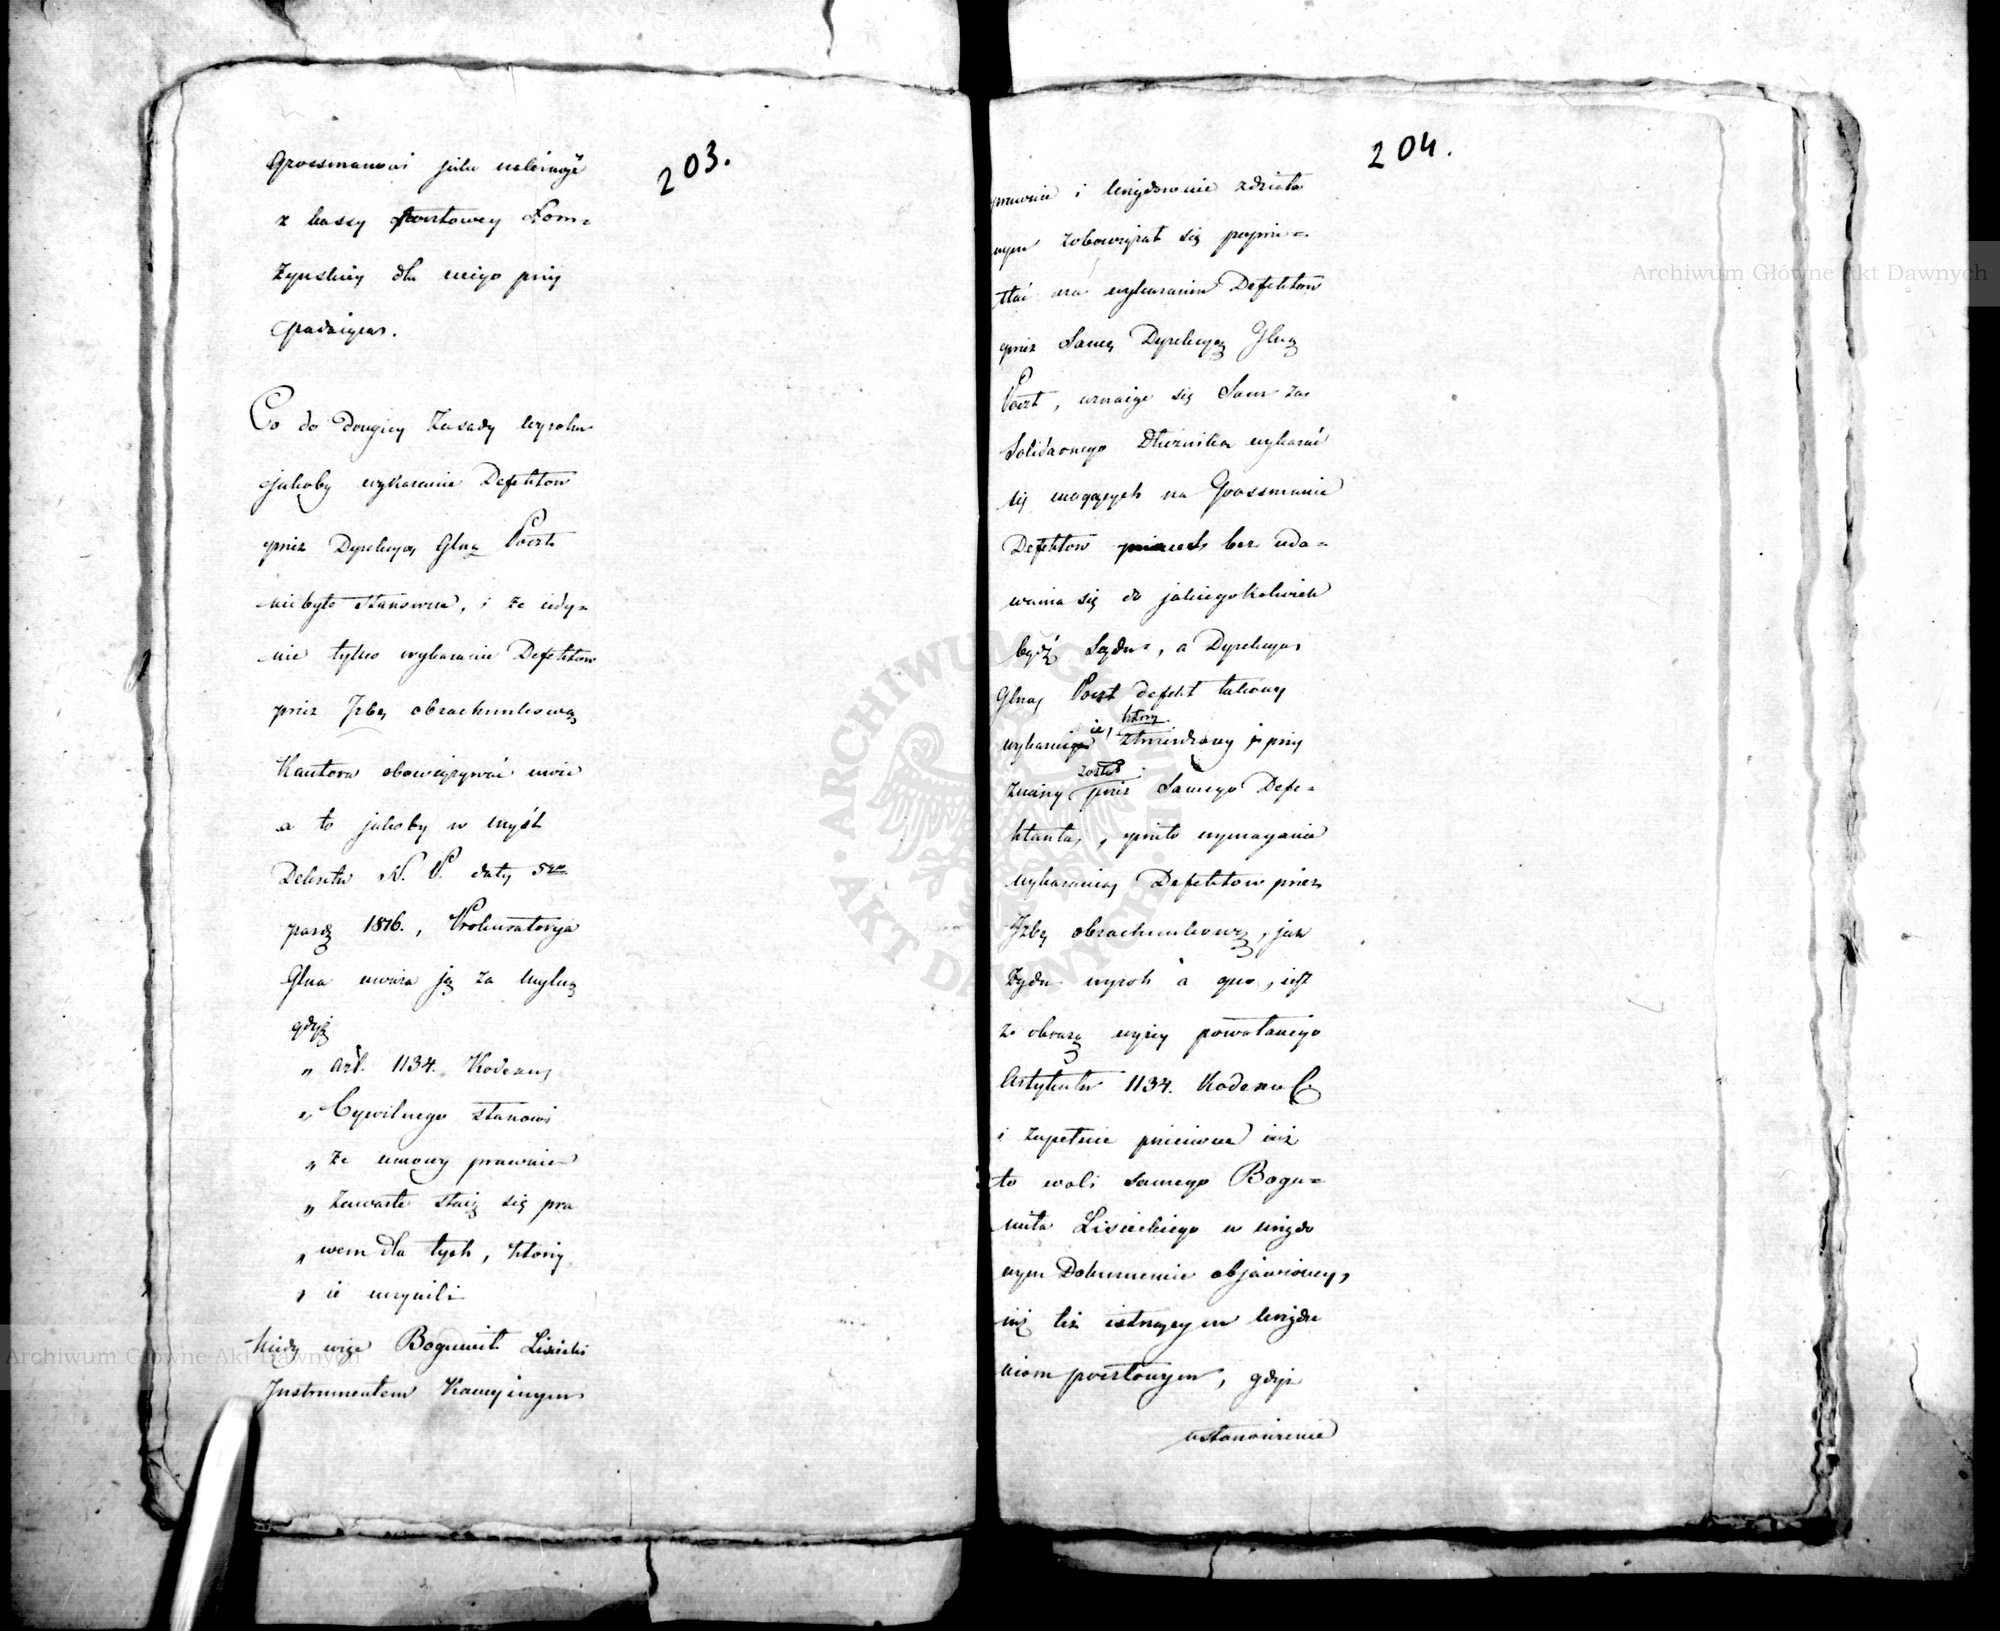 203.
Grossmanowi jako należące
z kassy pocztowey Łom=
żyńskiey dla niego przy
padaiącą.
Co do drugiey Zasady wyroku
jakoby wykazanie Defektow
przez Dyrekcyą Glną Poczt
niebyło stanowcze, i że iedy=
nie tylko wykazanie Defektow
przez Jzbę obrachunkową
Kantora obowiązywać może
a to jakoby w myśl
Dekretu N. P. daty 5go
pazdz 1816., Prokuratorya
Glna uważa ją za mylną
gdyż
„ art. 1134. Kodexu
„ Cywilnego stanowi
„ że umowy prawnie
„ zawarte staią się pra
„ wem dla tych, którzy
„ ie uczynili
kiedy więc Bogumił Lisiecki
Jnstrumentem Kaucyinym
204.
prawnie i urzędownie zdziała
nym zobowiązał się poprze=
stać na wykazaniu Defektow
przez samą Dyrekcyą Glną
Poczt, uznaiąc się sam za
solidarnego Dłużnika wykazać
się mogących na Grossmanie
Defektow bez uda=
wania się do jakiegokolwiek
bądź Sądu, a Dyrekcya
Glna Poczt defekt takowy
wykazuie, który stwierdzony i przy
znany został przez samego Defe=
ktanta, przeto wymagania
wykazania Defektow przez
Jzbę obrachunkową, jak
żąda wyrok a quo, iest
z obrazą wyżey powołanego
Artykułu 1134. Kodexu C.
i zupełnie przeciwne iuż
to woli samego Bogu=
miła Lisieckiego w urzędo
wym Dokumencie objawioney,
iuż też istnącym urządze
niom pocztowym, gdyż
ustanowienie